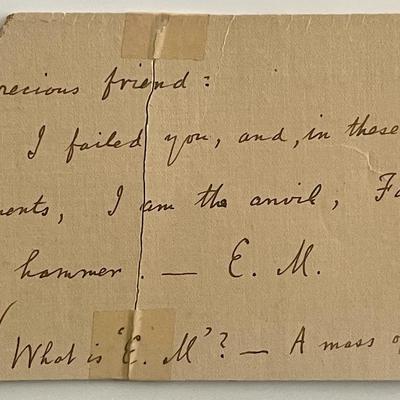 recious friend:
I failed you, and, in these
ments, I am the anvil, Fa
hammer. — E. M.
What is 'E. M'? — A mass o